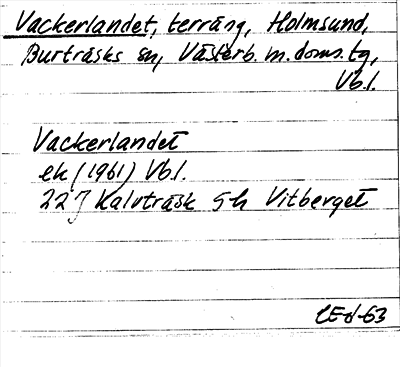 Vackerlandet, terräng, Holmsund,
Burträsks sn, Västerb. m. doms. tg,
Vb.l.
Vackerlandet
ek (1961) Vb l.
22 J Kalvträsk 5h Vitberget
CEd-63